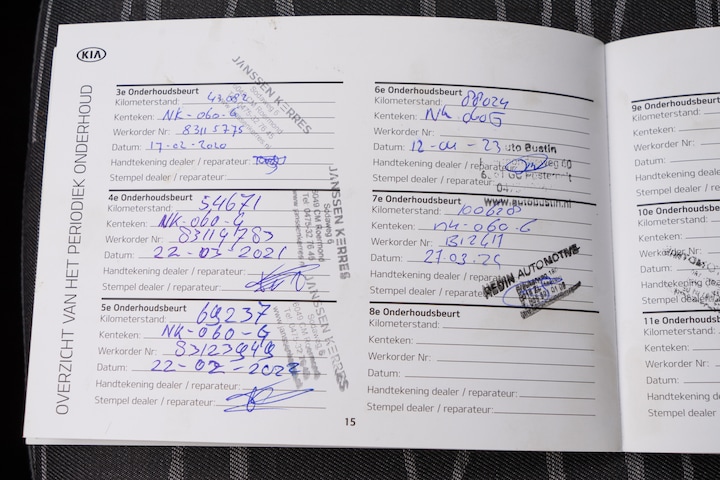 KIA
OVERZICHT VAN HET PERIODIEK ONDERHOUD
3e Onderhoudsbeurt
Kilometerstand: 43.082
Kenteken: NK-060-G
Werkorder Nr: 83115775
Datum: 17-02-2020
Handtekening dealer / reparateur:
Stempel dealer / reparateur:
JANSSEN KERRES
4e Onderhoudsbeurt
Kilometerstand: 54671
Kenteken: NK-060-G
Werkorder Nr: 83114783
Datum: 22-03-2021
Handtekening dealer / reparateur:
Stempel dealer / reparateur:
JANSSEN KERRES
Südweg 6
6049 CM Roermond
5e Onderhoudsbeurt
Kilometerstand: 69237
Kenteken: NK-060-G
Werkorder Nr: 83123949
Datum: 22-02-2022
Handtekening dealer / reparateur:
Stempel dealer / reparateur:
JANSSEN KERRES
15
6e Onderhoudsbeurt
Kilometerstand: 88024
Kenteken: NK 060G
Werkorder Nr:
Datum: 12-01-23
Handtekening dealer / reparateur:
Stempel dealer / reparateur:
uto Bustin
www.autobustin.nl
7e Onderhoudsbeurt
Kilometerstand: 100628
Kenteken: nk-060-G
Werkorder Nr: B12611
Datum: 27.03.24
Handtekening dealer / reparateur:
Stempel dealer / reparateur:
HEDIN AUTOMOTIVE
8e Onderhoudsbeurt
Kilometerstand:
Kenteken:
Werkorder Nr:
Datum:
Handtekening dealer / reparateur:
Stempel dealer / reparateur:
9e Onderhoudsb
Kilometerstand:
Kenteken:
Werkorder Nr:
Datum:
Handtekening dea
Stempel dealer / r
10e Onderhouds
Kilometerstand:
Kenteken:
Werkorder Nr:
Datum:
Handtekening deal
Stempel dealer / re
11e Onderhouds
Kilometerstand:
Kenteken:
Werkorder Nr:
Datum:
Handtekening deale
Stempel dealer / rep